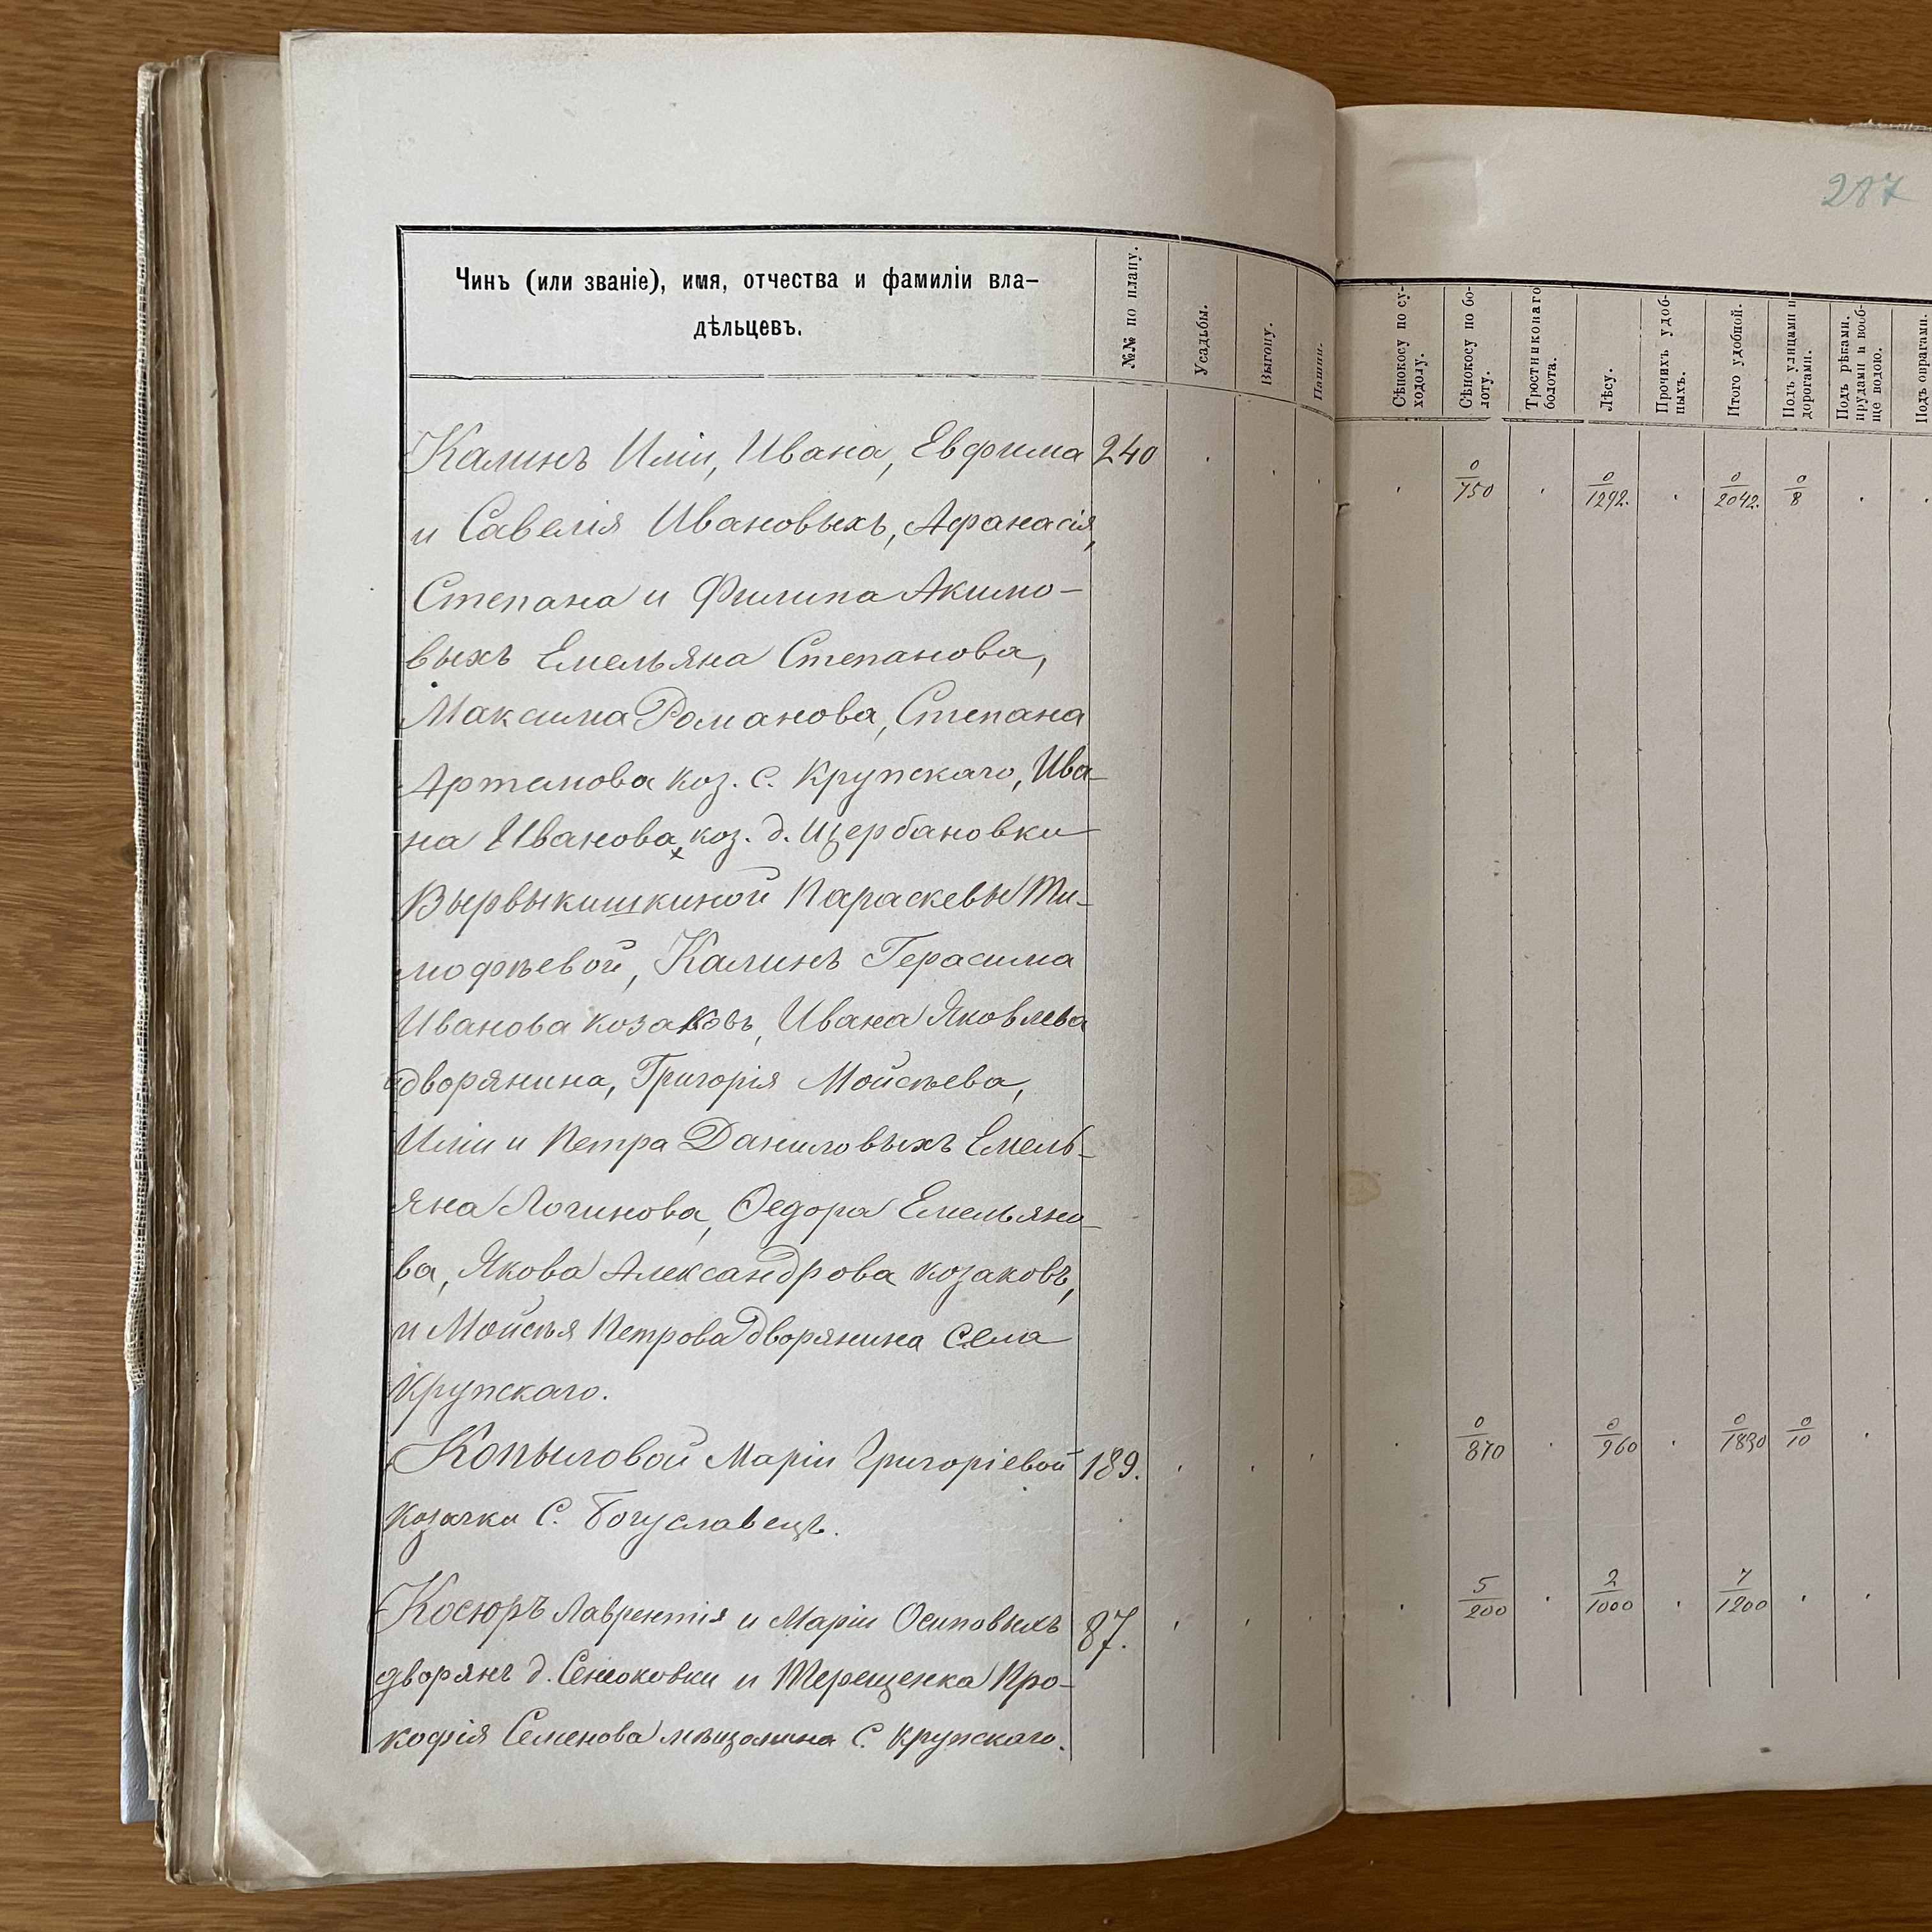 287
Чинъ (или званіе), имя, отчества и фамиліи вла-
дѣльцевъ.
№№ по плану.
Усадьбы.
Выгону.
Пашни.
Сѣнокосу по су-
ходолу.
Сѣнокосу по бо-
лоту.
Тростниковаго
болота.
Лѣсу.
Прочихъ удоб-
ныхъ.
Итого удобной.
Подъ улицами и
дорогами.
Подъ рѣками.
прудами и вооб-
ще водою.
Подъ оврагами.
Калинъ Иліи, Ивана, Евфима 240 0/750 0/1292. 0/2042. 0/8
и Савелія Ивановыхъ, Афанасія,
Степана и Филипа Акимо-
выхъ Емельяна Степанова,
Максима Романова, Степана
Артемова коз. с. Крупскаго, Ива-
на Иванова, коз. д. Щербановки
Вырвыкишкиной Параскевы Ти-
мофѣевой, Калинъ Герасима
Иванова козаковъ, Ивана Яковлева
дворянина, Григорія Мойсѣева,
Иліи и Петра Даниловыхъ Емель-
яна Логинова, Ѳедора Емельяно-
ва, Якова Александрова козаковъ,
и Мойсѣя Петрова дворянина села
Крупскаго.
Копыловой Маріи Григоріевой 189. 0/870 0/960 0/1830 0/10
козачки с. Богуславецъ.
Косюръ Лаврентія и Маріи Осиповыхъ 87. 5/200 2/1000 7/1200
дворянъ д. Сенюковки и Терещенка Про-
кофія Семенова мѣщанина с. Крупскаго.